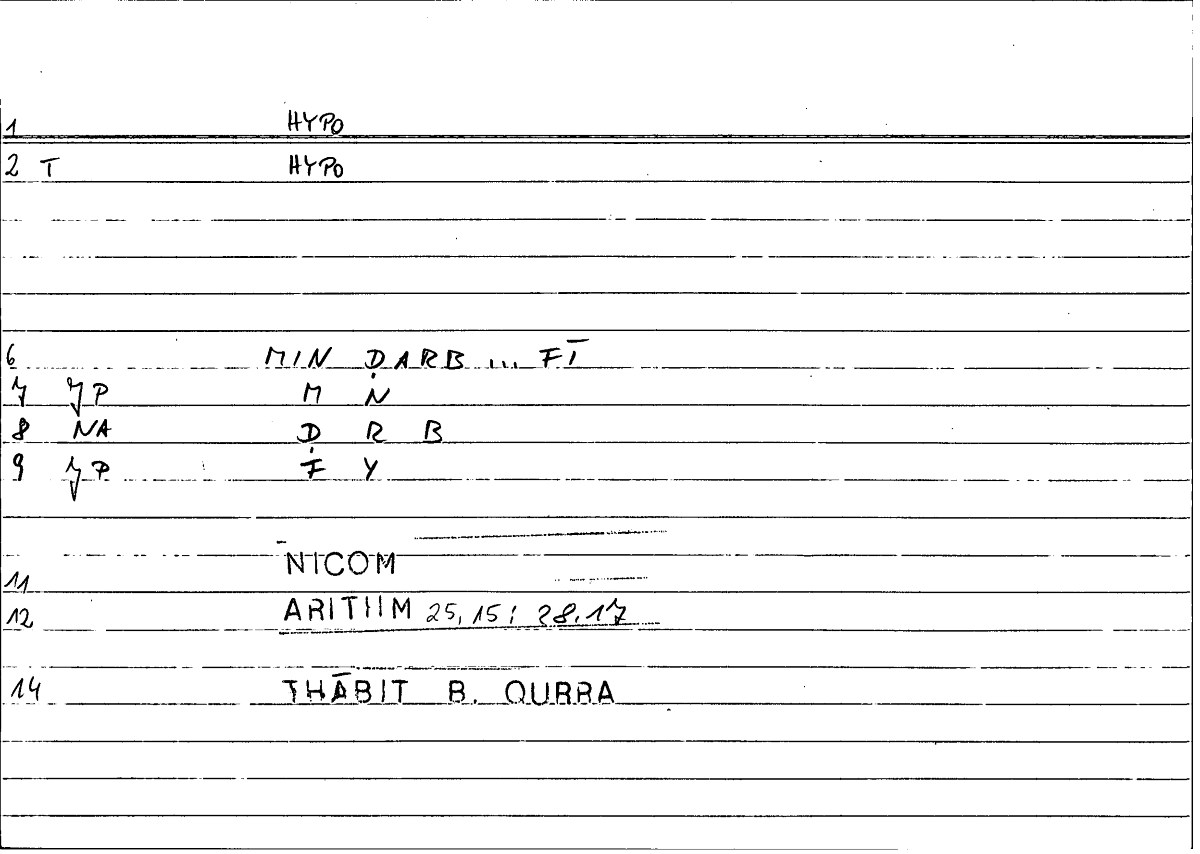 1 HYPO
2 T HYPO
6 MIN ḌARB ... FĪ
7 JP M N
8 NA Ḍ R B
9 JP F Y
11 NICOM
12 ARITHM 25,15; 28.17
14 THĀBIT B. QURRA